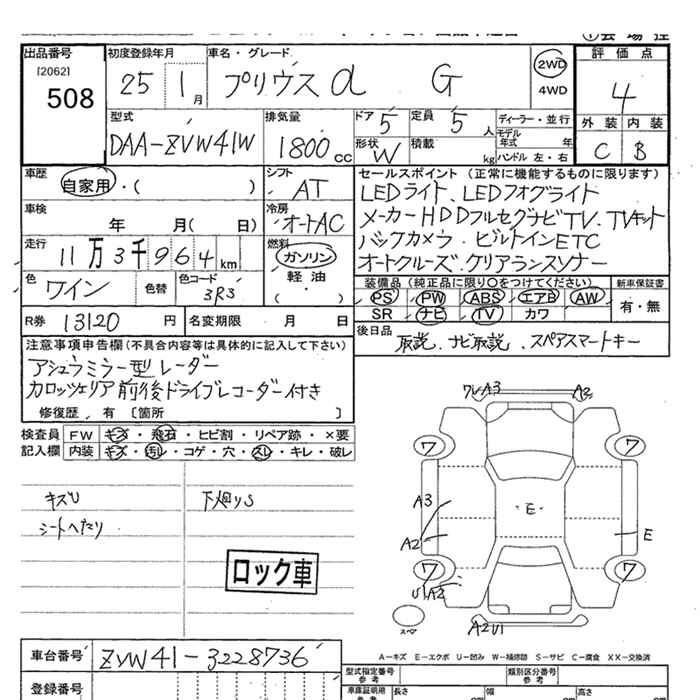 出品番号
[2062]
508
初度登録年月
25 1月
車名・グレード
プリウスα G
2WD
4WD
評価点
4
外装 内装
C B
型式
DAA-ZVW41W
排気量
1800cc
ドア 5
形状 W
定員 5人
積載 kg
ディーラー・並行
モデル
年式 年
ハンドル 左・右
車歴
自家用・( )
シフト
AT
車検
年 月( 日)
冷房
オートAC
走行
11万3千964km
燃料
ガソリン
軽油
( )
色
ワイン
色替
色コード
3R3
R券 13120円
名変期限 月 日
セールスポイント(正常に機能するものに限ります)
LEDライト、LEDフォグライト
メーカーHDDフルセグナビTV、TVキット
バックカメラ、ビルトインETC
オートクルーズ、クリアランスソナー
装備品(純正品に限り○をつけてください)
PS PW ABS エアB AW
SR ナビ TV カワ
新車保証書
有・無
後日品
取説、ナビ取説、スペアスマートキー
注意事項申告欄(不具合内容等は具体的に記入して下さい)
アシュラミラー型レーダー
カロッツェリア前後ドライブレコーダー付き
修復歴、有〔箇所 〕
検査員
記入欄
FW キズ・飛石・ヒビ割・リペア跡・×要
内装 キズ・汚レ・コゲ・穴・スレ・キレ・破レ
キズU
シートへたり
下廻りS
ロック車
ワレA3 A2
ワ ワ
A3
E
E
A2
ワ ワ
U1A2
スペア
A2U1
A-キズ E-エクボ U-凹み W-補修跡 S-サビ C-腐食 XX-交換済
車台番号
ZVW41-3228736
登録番号
型式指定番号
参考
類別区分番号
参考
車庫証明用
長さ 幅 高さ